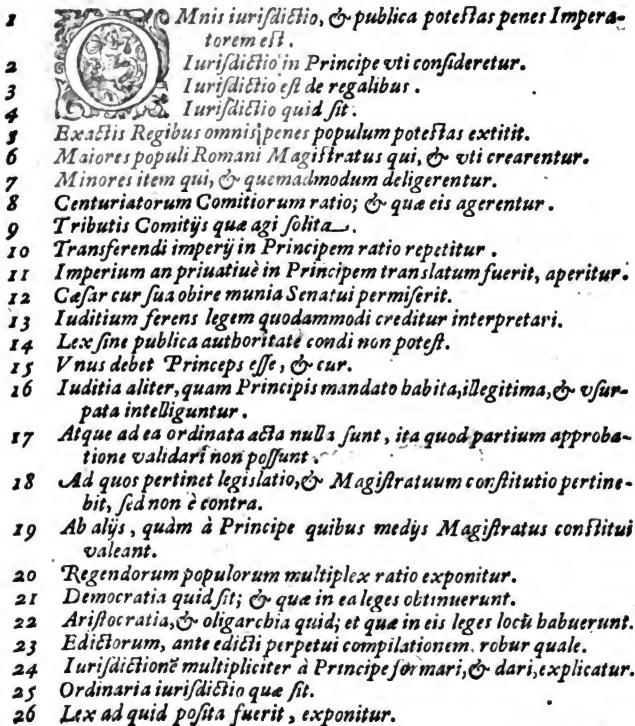 1 OMnis iurisdictio, & publica potestas penes Impera-
torem est.
2 Iurisdictio in Principe vti consideretur.
3 Iurisdictio est de regalibus.
4 Iurisdictio quid sit.
5 Exactis Regibus omnis penes populum potestas extitit.
6 Maiores populi Romani Magistratus qui, & vti crearentur.
7 Minores item qui, & quemadmodum deligerentur.
8 Centuriatorum Comitiorum ratio; & quæ eis agerentur.
9 Tributis Comitijs quæ agi solita.
10 Transferendi imperij in Principem ratio repetitur.
11 Imperium an priuatiuè in Principem translatum fuerit, aperitur.
12 Cæsar cur sua obire munia Senatui permiserit.
13 Iuditium ferens legem quodammodi creditur interpretari.
14 Lex sine publica authoritate condi non potest.
15 Vnus debet Princeps esse, & cur.
16 Iuditia aliter, quam Principis mandato habita, illegitima, & vsur-
pata intelliguntur.
17 Atque ad ea ordinata acta nulla sunt, ita quod partium approba-
tione validari non possunt.
18 Ad quos pertinet legislatio, & Magistratuum constitutio pertine-
bit, sed non è contra.
19 Ab alijs, quàm à Principe quibus medijs Magistratus constitui
valeant.
20 Regendorum populorum multiplex ratio exponitur.
21 Democratia quid sit; & quæ in ea leges obtinuerunt.
22 Aristocratia, & oligarchia quid; et quæ in eis leges locũ habuerunt.
23 Edictorum, ante edicti perpetui compilationem, robur quale.
24 Iurisdictionẽ multipliciter à Principe formari, & dari, explicatur.
25 Ordinaria iurisdictio quæ sit.
26 Lex ad quid posita fuerit, exponitur.